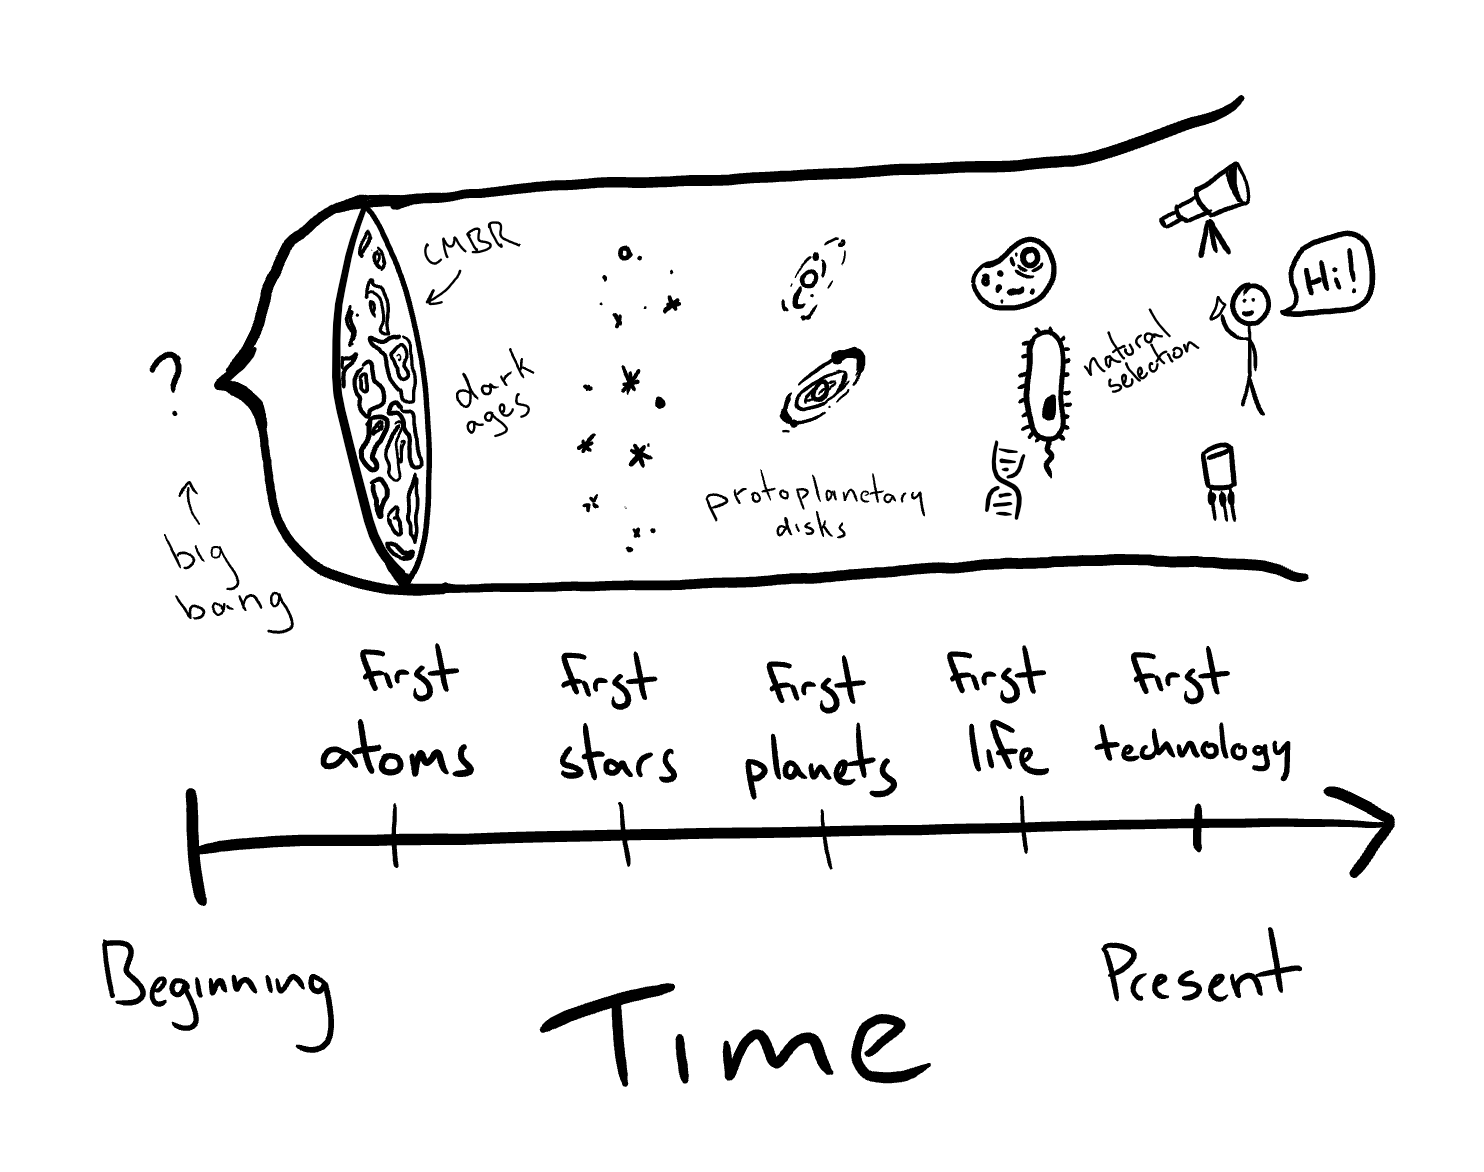 CMBR
?
dark
ages
big
bang
protoplanetary
disks
natural
selection
Hi!
first
atoms
first
stars
first
planets
first
life
first
technology
Beginning
Present
Time